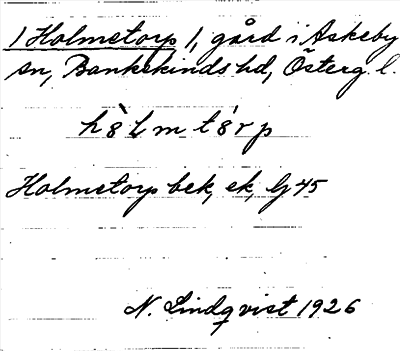 1 Holmetorp 1, gård i Askeby
sn, Bankekinds hd, Österg. l.
Holmetorp bek, ek, Gj 45
N. Lindqvist 1926